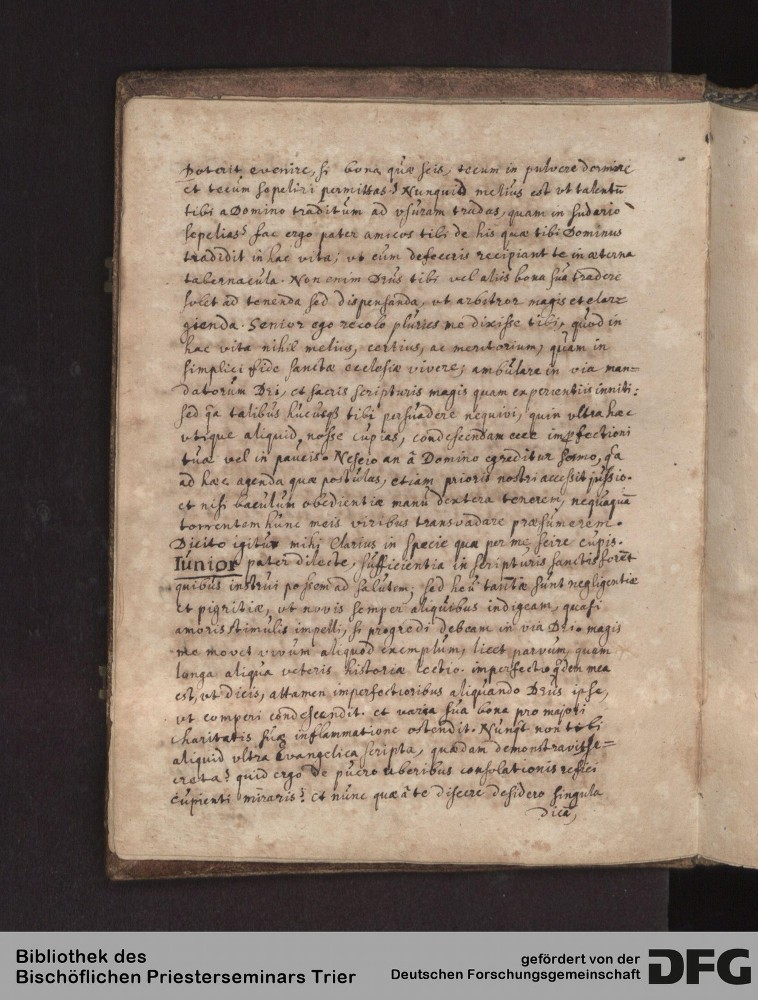 poterit evenire, si bona quæ scis, tecum in pulvere dormiꝛe
et tecum sepeliri permittas? Nunquid melius est vt talentū
tibi a Domino traditum ad vsuram tradas, quam in sudario
sepelias? fac ergo pater amicos tibi de his quæ tibi Dominus
tradidit in hac vita; vt cum defeceris recipiant te in æterna
tabernacula. Non enim Deus tibi vel aliis bona sua tradere
solet ad tenenda sed dispensanda, vt arbitror magis et elar
gienda. Senior ego recolo pluries me dixisse tibi, quod in
hac vita nihil melius, certius, ac meritorium, quam in
simplici fide sanctæ ecclesiæ vivere, ambulare in via man=
datorum Dei, et sacris scripturis magis quam experientiis inniti:
sed qa talibus hucusqs tibi persuadere nequivi, quin vltra hæc
vtique aliquid nosse cupias, condescendam ecce imperfectioni
tuæ vel in paucis. Nescio an â Domino egreditur sermo, qa
ad hæc agenda quæ postulas, etiam prioris nostri accessit jussio.
et nisi baculum obedientiæ manu dextera tenerem, nequaquā
torrentem hunc meis viribus transvadare præsumerem.
Dicito igitur mihj clarius in specie quæ per me scire cupis.
Iunior pater dilecte, sufficientia in scripturis sanctis forēt
quibus instrui possem ad salutem; sed heu tantæ sunt negligentiæ
et pigritiæ, vt novis semper aliquibus indigeam, quasi
amoris stimulis impelli, si progredi debeam in via Dei. magis
me movet vivum aliquod exemplum, licet parvum, quam
longa aliqua veteris historiæ lectio. imperfectio qdem mea
est, vt dicis, attamen imperfectioribus aliquando Deus ipse,
vt comperi condescendit. et varia sua bona pro majori
charitatis suæ inflammatione ostendit. Nunqt non tibi
aliquid vltra Evangelica scripta, quædam demonstravit se=
creta? quid ergo de puero uberibus consolationis refici
cupienti miraris? et nunc quæ â te discere desidero singula
dicā,
Bibliothek des
Bischöflichen Priesterseminars Trier
gefördert von der
Deutschen Forschungsgemeinschaft
DFG